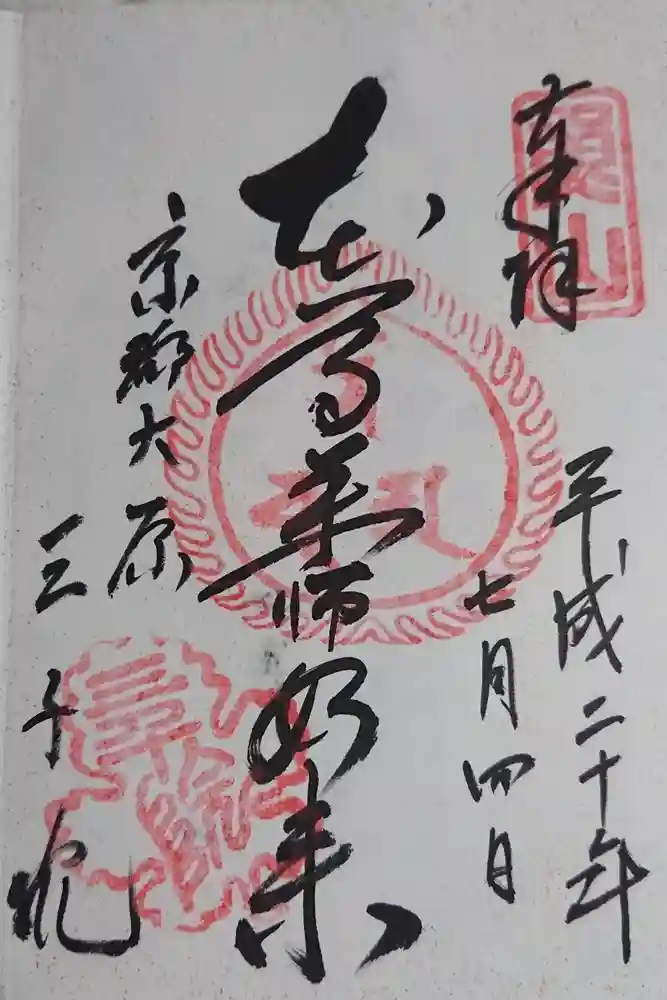 奉拝
平成二十年
七月四日
本尊薬師如来
京都大原
三千院